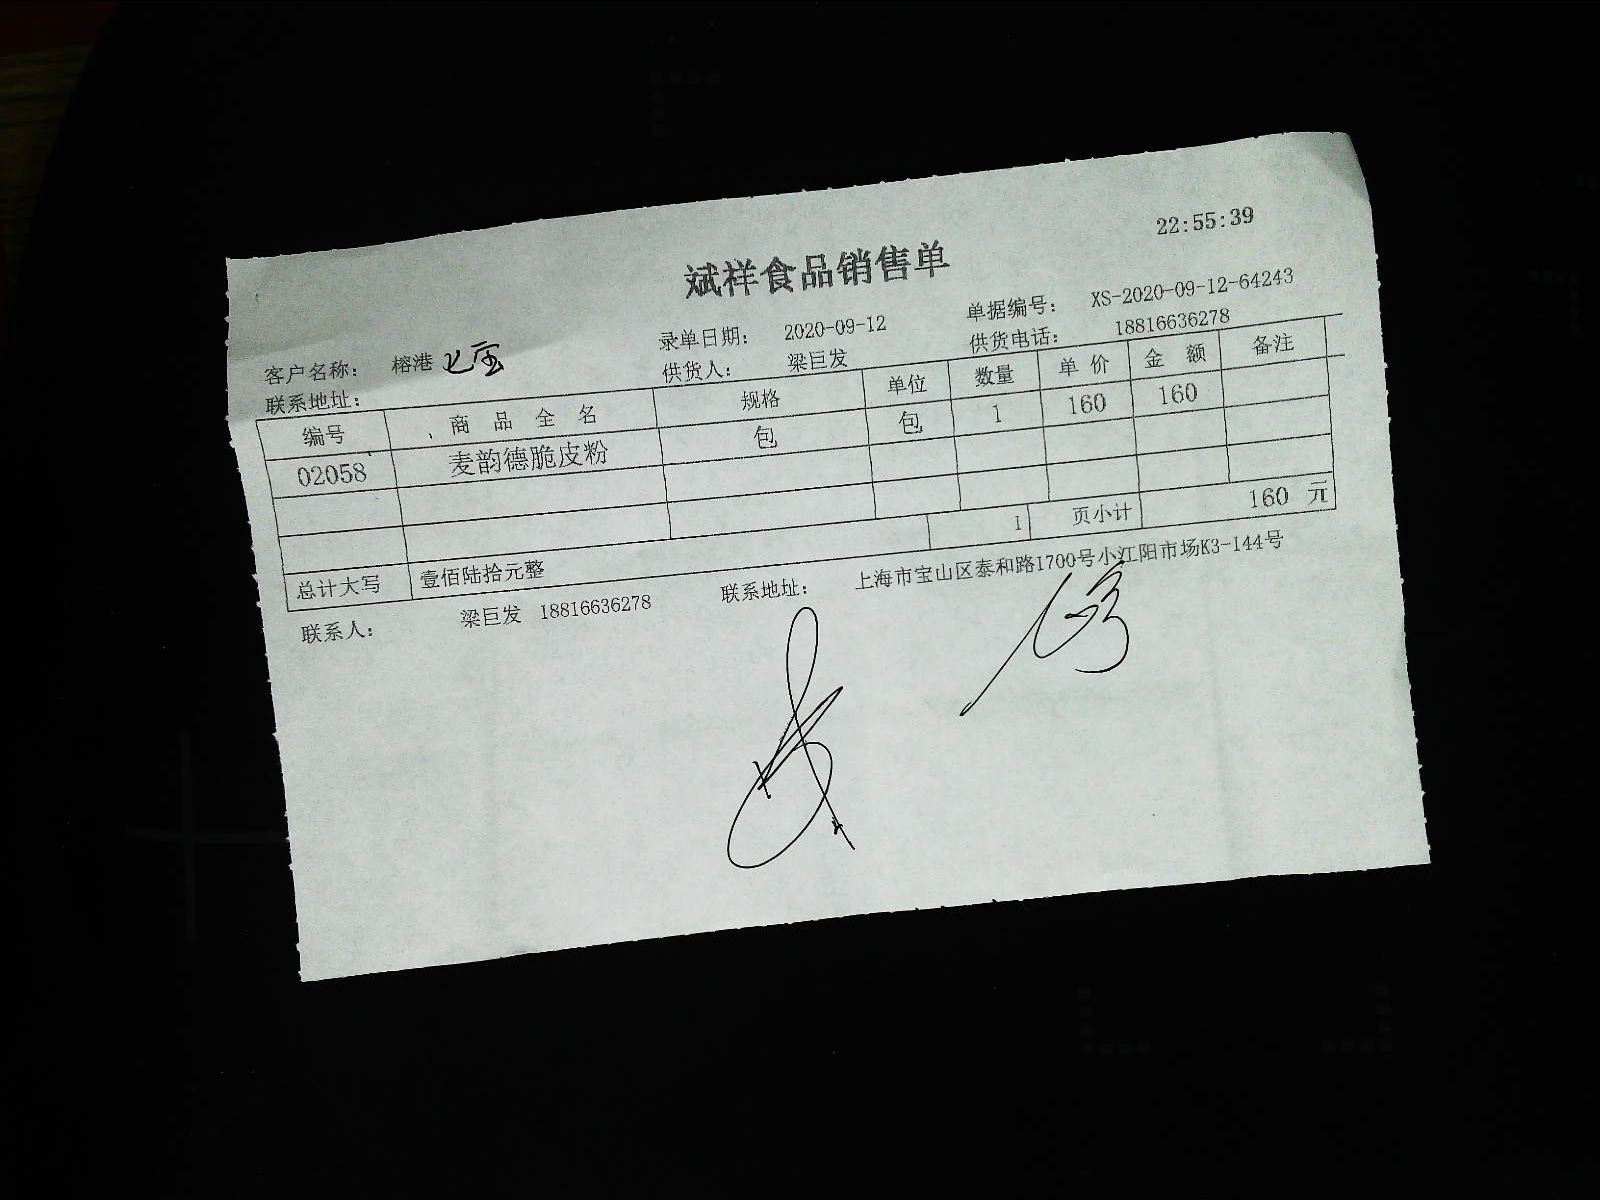 22:55:39
斌祥食品销售单
录单日期： 2020-09-12 单据编号： XS-2020-09-12-64243
客户名称： 榕港 供货人： 梁巨发 供货电话： 18816636278
联系地址：
编号 商 品 全 名 规格 单位 数量 单 价 金 额 备注
02058 麦韵德脆皮粉 包 包 1 160 160
1 页小计 160 元
总计大写 壹佰陆拾元整
联系人： 梁巨发 18816636278 联系地址： 上海市宝山区泰和路1700号小江阳市场K3-144号